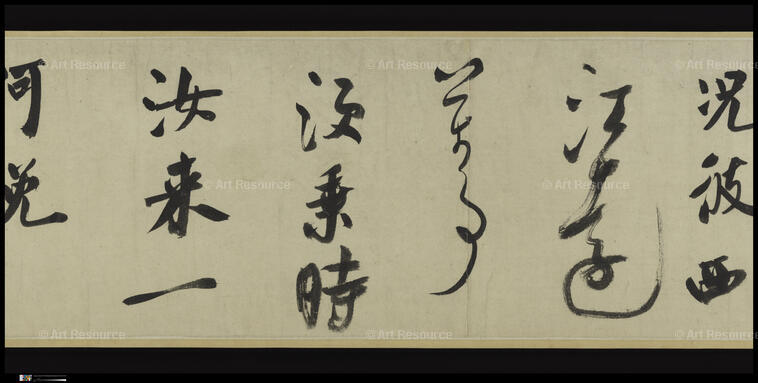 況彼西
江遠
萬事
須乘時
汝来一
何晚
© Art Resource
© Art Resource
© Art Resource
© Art Resource
© Art Resource
© Art Resource
© Art Resource
© Art Resource